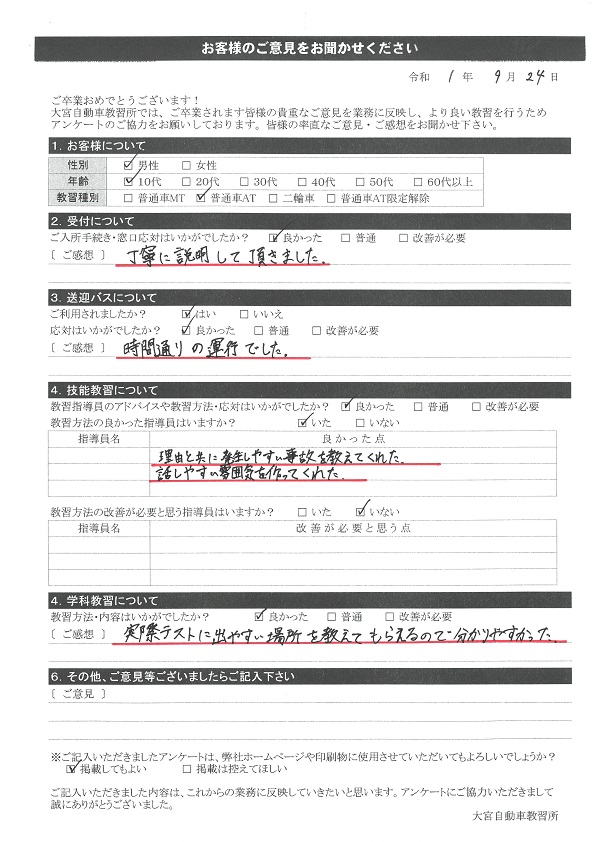 お客様のご意見をお聞かせください
令和 1 年 9 月 24 日
ご卒業おめでとうございます！
大宮自動車教習所では、ご卒業されます皆様の貴重なご意見を業務に反映し、より良い教習を行うため
アンケートのご協力をお願いしております。皆様の率直なご意見・ご感想をお聞かせ下さい。
1. お客様について
性別 ☑ 男性 □ 女性
年齢 ☑ 10代 □ 20代 □ 30代 □ 40代 □ 50代 □ 60代以上
教習種別 □ 普通車MT ☑ 普通車AT □ 二輪車 □ 普通車AT限定解除
2. 受付について
ご入所手続き・窓口応対はいかがでしたか？ ☑ 良かった □ 普通 □ 改善が必要
〔 ご感想 〕 丁寧に説明して頂きました。
3. 送迎バスについて
ご利用されましたか？ ☑ はい □ いいえ
応対はいかがでしたか？ ☑ 良かった □ 普通 □ 改善が必要
〔 ご感想 〕 時間通りの運行でした。
4. 技能教習について
教習指導員のアドバイスや教習方法・応対はいかがでしたか？ ☑ 良かった □ 普通 □ 改善が必要
教習方法の良かった指導員はいますか？ ☑ いた □ いない
指導員名 良かった点
理由と共に発生しやすい事故を教えてくれた。
話しやすい雰囲気を作ってくれた。
教習方法の改善が必要と思う指導員はいますか？ □ いた ☑ いない
指導員名 改善が必要と思う点
4. 学科教習について
教習方法・内容はいかがでしたか？ ☑ 良かった □ 普通 □ 改善が必要
〔 ご感想 〕 実際テストに出やすい場所を教えてもらえるので分かりやすかった。
6. その他、ご意見等ございましたらご記入下さい
〔 ご意見 〕
※ご記入いただきましたアンケートは、弊社ホームページや印刷物に使用させていただいてもよろしいでしょうか？
☑ 掲載してもよい □ 掲載は控えてほしい
ご記入いただきました内容は、これからの業務に反映していきたいと思います。アンケートにご協力いただきまして
誠にありがとうございました。
大宮自動車教習所